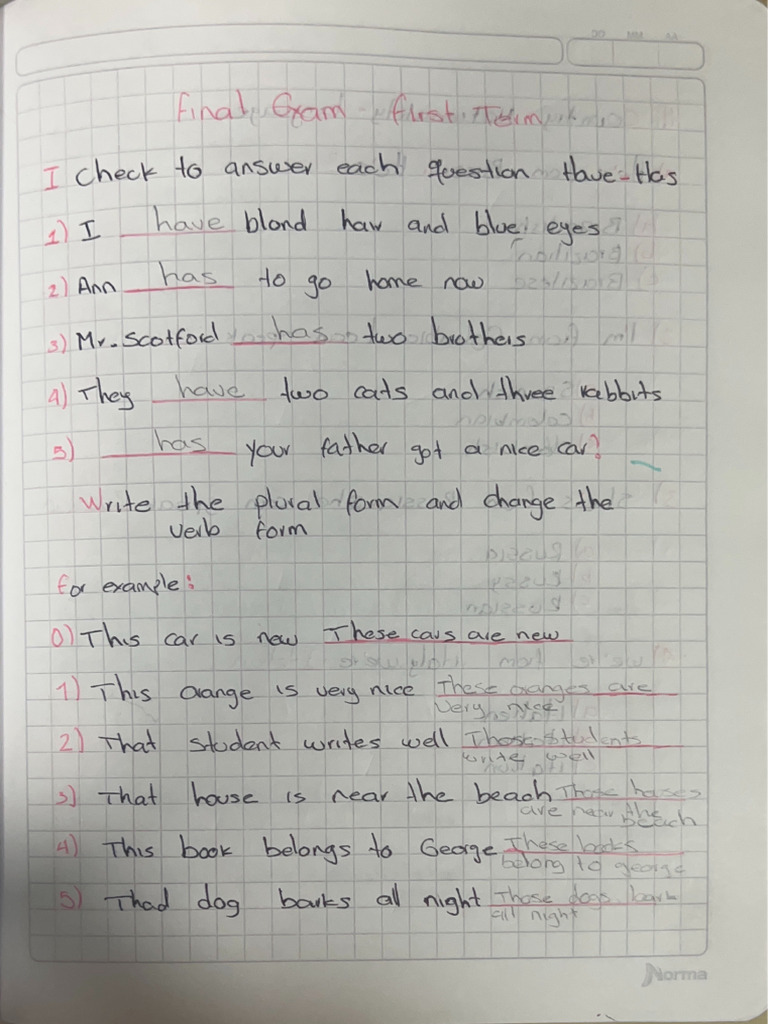 DD MM AA
Final Exam First Term
I Check to answer each question Have - Has
1) I have blond haw and blue eyes
2) Ann has to go home now
3) Mr. Scotford has two brothers
4) They have two cats and three rabbits
5) has your father got a nice car?
Write the plural form and change the
verb form
for example:
0) This car is new These cars are new
1) This orange is very nice These oranges are
very nice
2) That student writes well Those students
write well
3) That house is near the beach Those houses
are near the
beach
4) This book belongs to George These books
belong to george
5) Thad dog barks all night Those dogs bark
all night
Norma